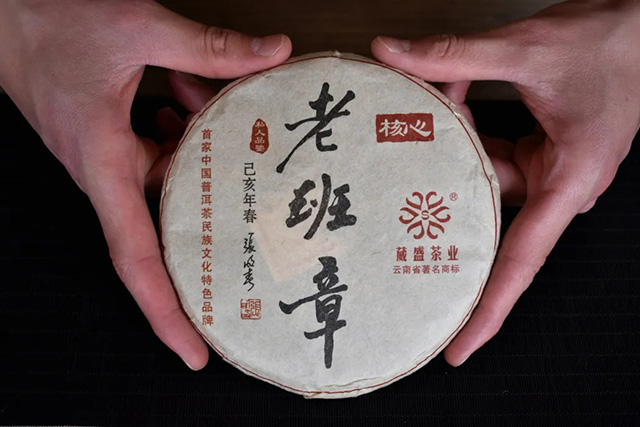 核心
®
葳盛茶业
云南省著名商标
老班章
私人品鉴
己亥年春
首家中国普洱茶民族文化特色品牌